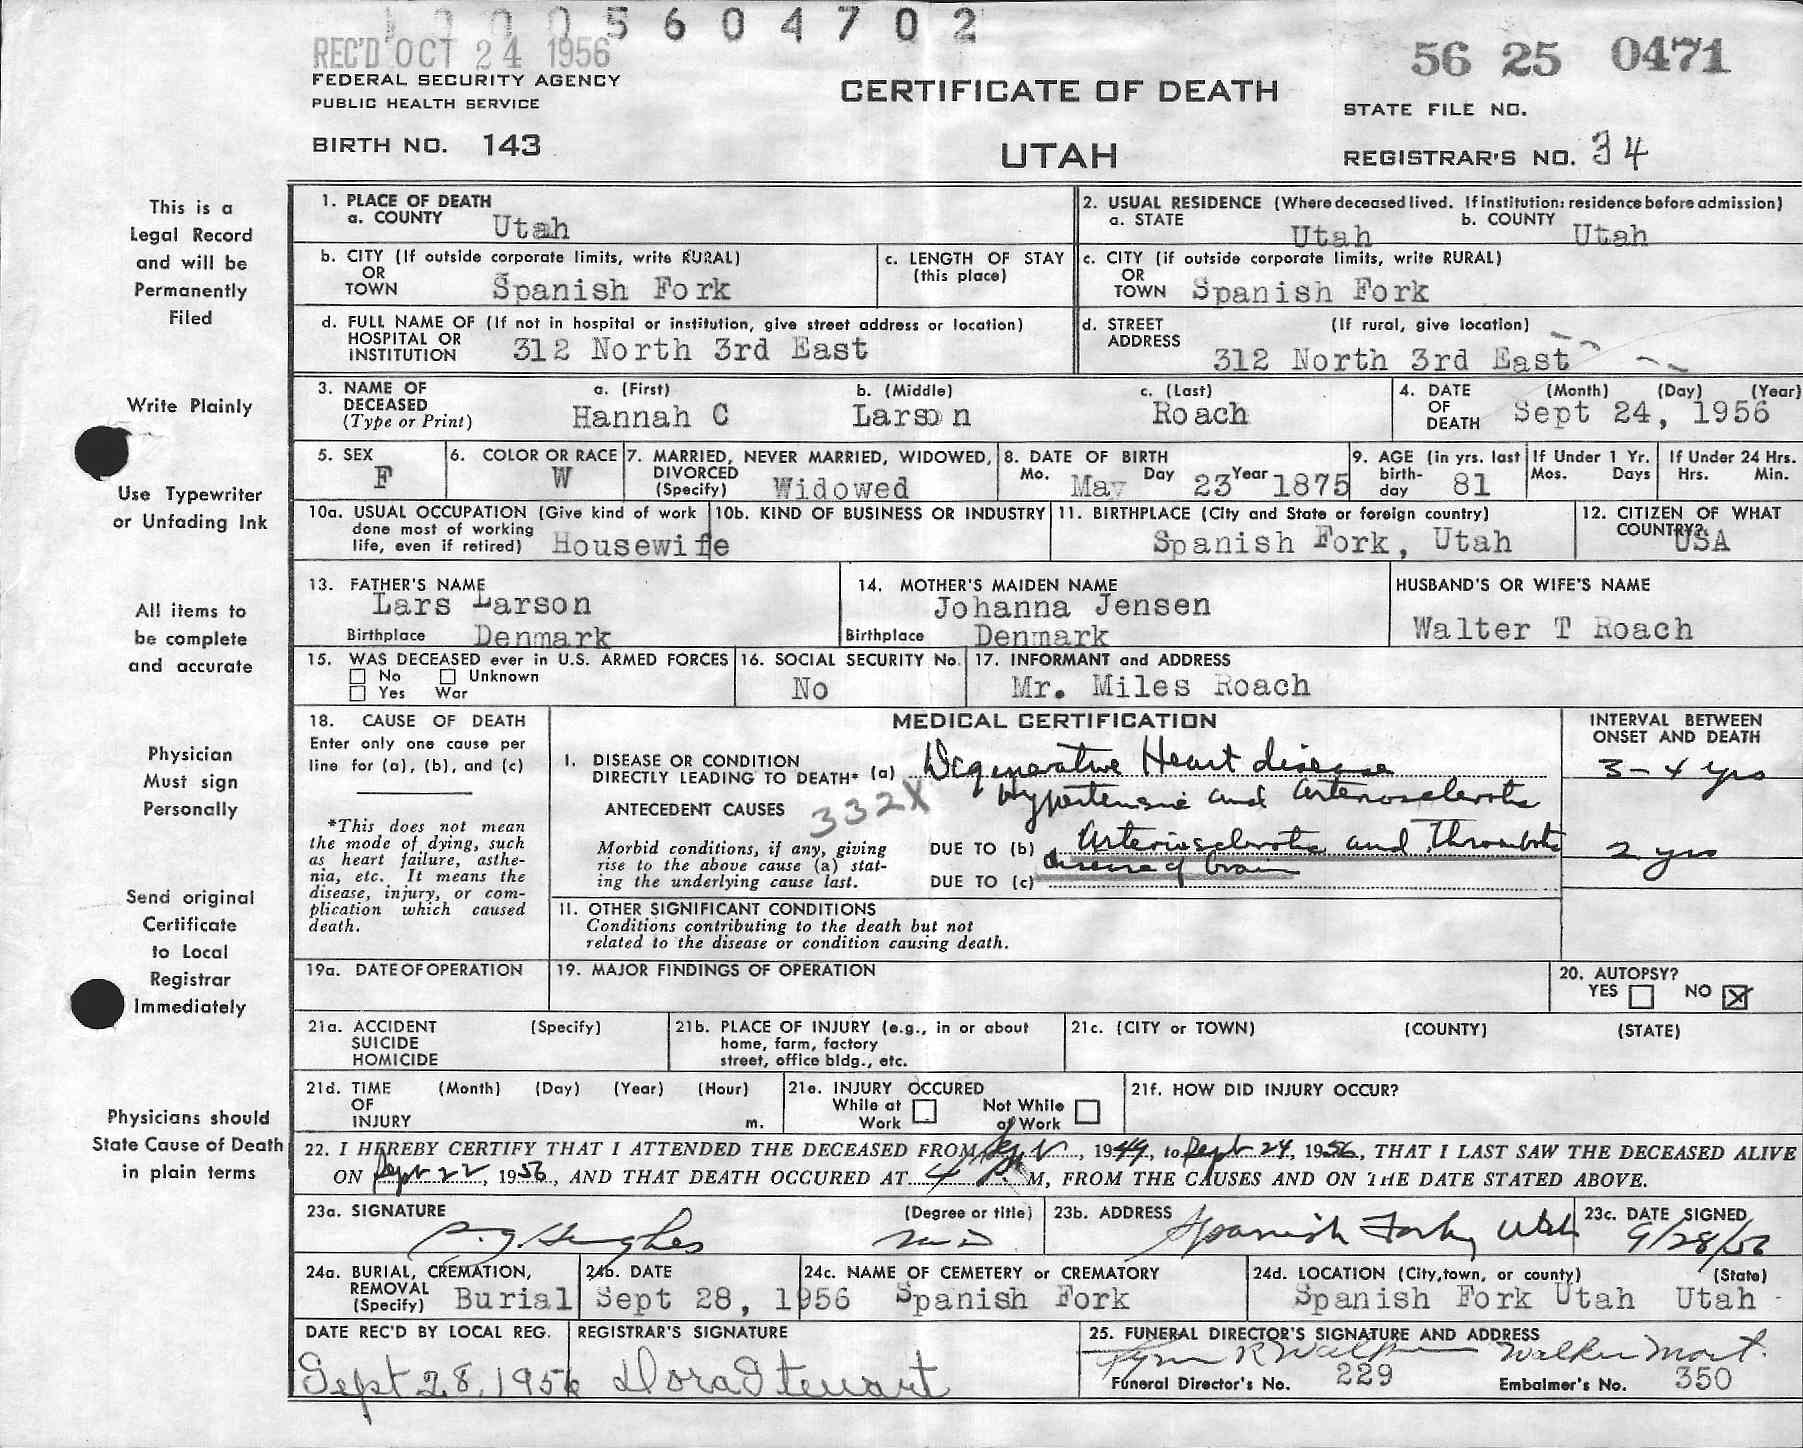 1 0 0 0 5 6 0 4 7 0 2
REC'D OCT 24 1956
56 25 0471
FEDERAL SECURITY AGENCY
PUBLIC HEALTH SERVICE
CERTIFICATE OF DEATH
STATE FILE NO.
BIRTH NO. 143
UTAH
REGISTRAR'S NO. 34
This is a
Legal Record
and will be
Permanently
Filed
Write Plainly
Use Typewriter
or Unfading Ink
All items to
be complete
and accurate
Physician
Must sign
Personally
Send original
Certificate
to Local
Registrar
Immediately
Physicians should
State Cause of Death
in plain terms
1. PLACE OF DEATH
a. COUNTY Utah
2. USUAL RESIDENCE (Where deceased lived. If institution: residence before admission)
a. STATE Utah b. COUNTY Utah
b. CITY (If outside corporate limits, write RURAL)
OR
TOWN Spanish Fork
c. LENGTH OF STAY
(this place)
c. CITY (if outside corporate limits, write RURAL)
OR
TOWN Spanish Fork
d. FULL NAME OF (If not in hospital or institution, give street address or location)
HOSPITAL OR
INSTITUTION 312 North 3rd East
d. STREET (If rural, give location)
ADDRESS
312 North 3rd East
3. NAME OF DECEASED
(Type or Print)
a. (First) b. (Middle) c. (Last)
Hannah C Larson Roach
4. DATE OF DEATH (Month) (Day) (Year)
Sept 24, 1956
5. SEX
F
6. COLOR OR RACE
W
7. MARRIED, NEVER MARRIED, WIDOWED,
DIVORCED
(Specify) Widowed
8. DATE OF BIRTH
Mo. May Day 23 Year 1875
9. AGE (in yrs. last
birth-
day 81
If Under 1 Yr.
Mos. Days
If Under 24 Hrs.
Hrs. Min.
10a. USUAL OCCUPATION (Give kind of work
done most of working
life, even if retired) Housewife
10b. KIND OF BUSINESS OR INDUSTRY
11. BIRTHPLACE (City and State or foreign country)
Spanish Fork, Utah
12. CITIZEN OF WHAT
COUNTRY? USA
13. FATHER'S NAME
Lars Larson
Birthplace Denmark
14. MOTHER'S MAIDEN NAME
Johanna Jensen
Birthplace Denmark
HUSBAND'S OR WIFE'S NAME
Walter T Roach
15. WAS DECEASED ever in U.S. ARMED FORCES
No Unknown
Yes War
16. SOCIAL SECURITY No.
No
17. INFORMANT and ADDRESS
Mr. Miles Roach
18. CAUSE OF DEATH
Enter only one cause per
line for (a), (b), and (c)
*This does not mean
the mode of dying, such
as heart failure, asthe-
nia, etc. It means the
disease, injury, or com-
plication which caused
death.
MEDICAL CERTIFICATION
INTERVAL BETWEEN
ONSET AND DEATH
I. DISEASE OR CONDITION
DIRECTLY LEADING TO DEATH* (a) Degenerative Heart disease
3-4 yrs
ANTECEDENT CAUSES 332X
Hypertensive and arteriosclerotic
Morbid conditions, if any, giving
rise to the above cause (a) stat-
ing the underlying cause last.
DUE TO (b) Arteriosclerotic and Thrombotic
2 yrs
disease of brain
DUE TO (c)
II. OTHER SIGNIFICANT CONDITIONS
Conditions contributing to the death but not
related to the disease or condition causing death.
19a. DATE OF OPERATION
19. MAJOR FINDINGS OF OPERATION
20. AUTOPSY?
YES NO X
21a. ACCIDENT (Specify)
SUICIDE
HOMICIDE
21b. PLACE OF INJURY (e.g., in or about
home, farm, factory
street, office bldg., etc.
21c. (CITY or TOWN) (COUNTY) (STATE)
21d. TIME (Month) (Day) (Year) (Hour)
OF
INJURY m.
21e. INJURY OCCURED
While at Work
Not While at Work
21f. HOW DID INJURY OCCUR?
22. I HEREBY CERTIFY THAT I ATTENDED THE DECEASED FROM , 1949, to Sept 24, 1956, THAT I LAST SAW THE DECEASED ALIVE
ON Sept 22, 1956, AND THAT DEATH OCCURED AT 4 P. M, FROM THE CAUSES AND ON THE DATE STATED ABOVE.
23a. SIGNATURE (Degree or title)
Hughes M D
23b. ADDRESS Spanish Fork, Utah
23c. DATE SIGNED
9/28/56
24a. BURIAL, CREMATION,
REMOVAL
(Specify) Burial
24b. DATE
Sept 28, 1956
24c. NAME OF CEMETERY or CREMATORY
Spanish Fork
24d. LOCATION (City, town, or county) (State)
Spanish Fork Utah Utah
DATE REC'D BY LOCAL REG.
Sept 28, 1956
REGISTRAR'S SIGNATURE
Dora Stewart
25. FUNERAL DIRECTOR'S SIGNATURE AND ADDRESS
Walker Mort.
Funeral Director's No. 229 Embalmer's No. 350